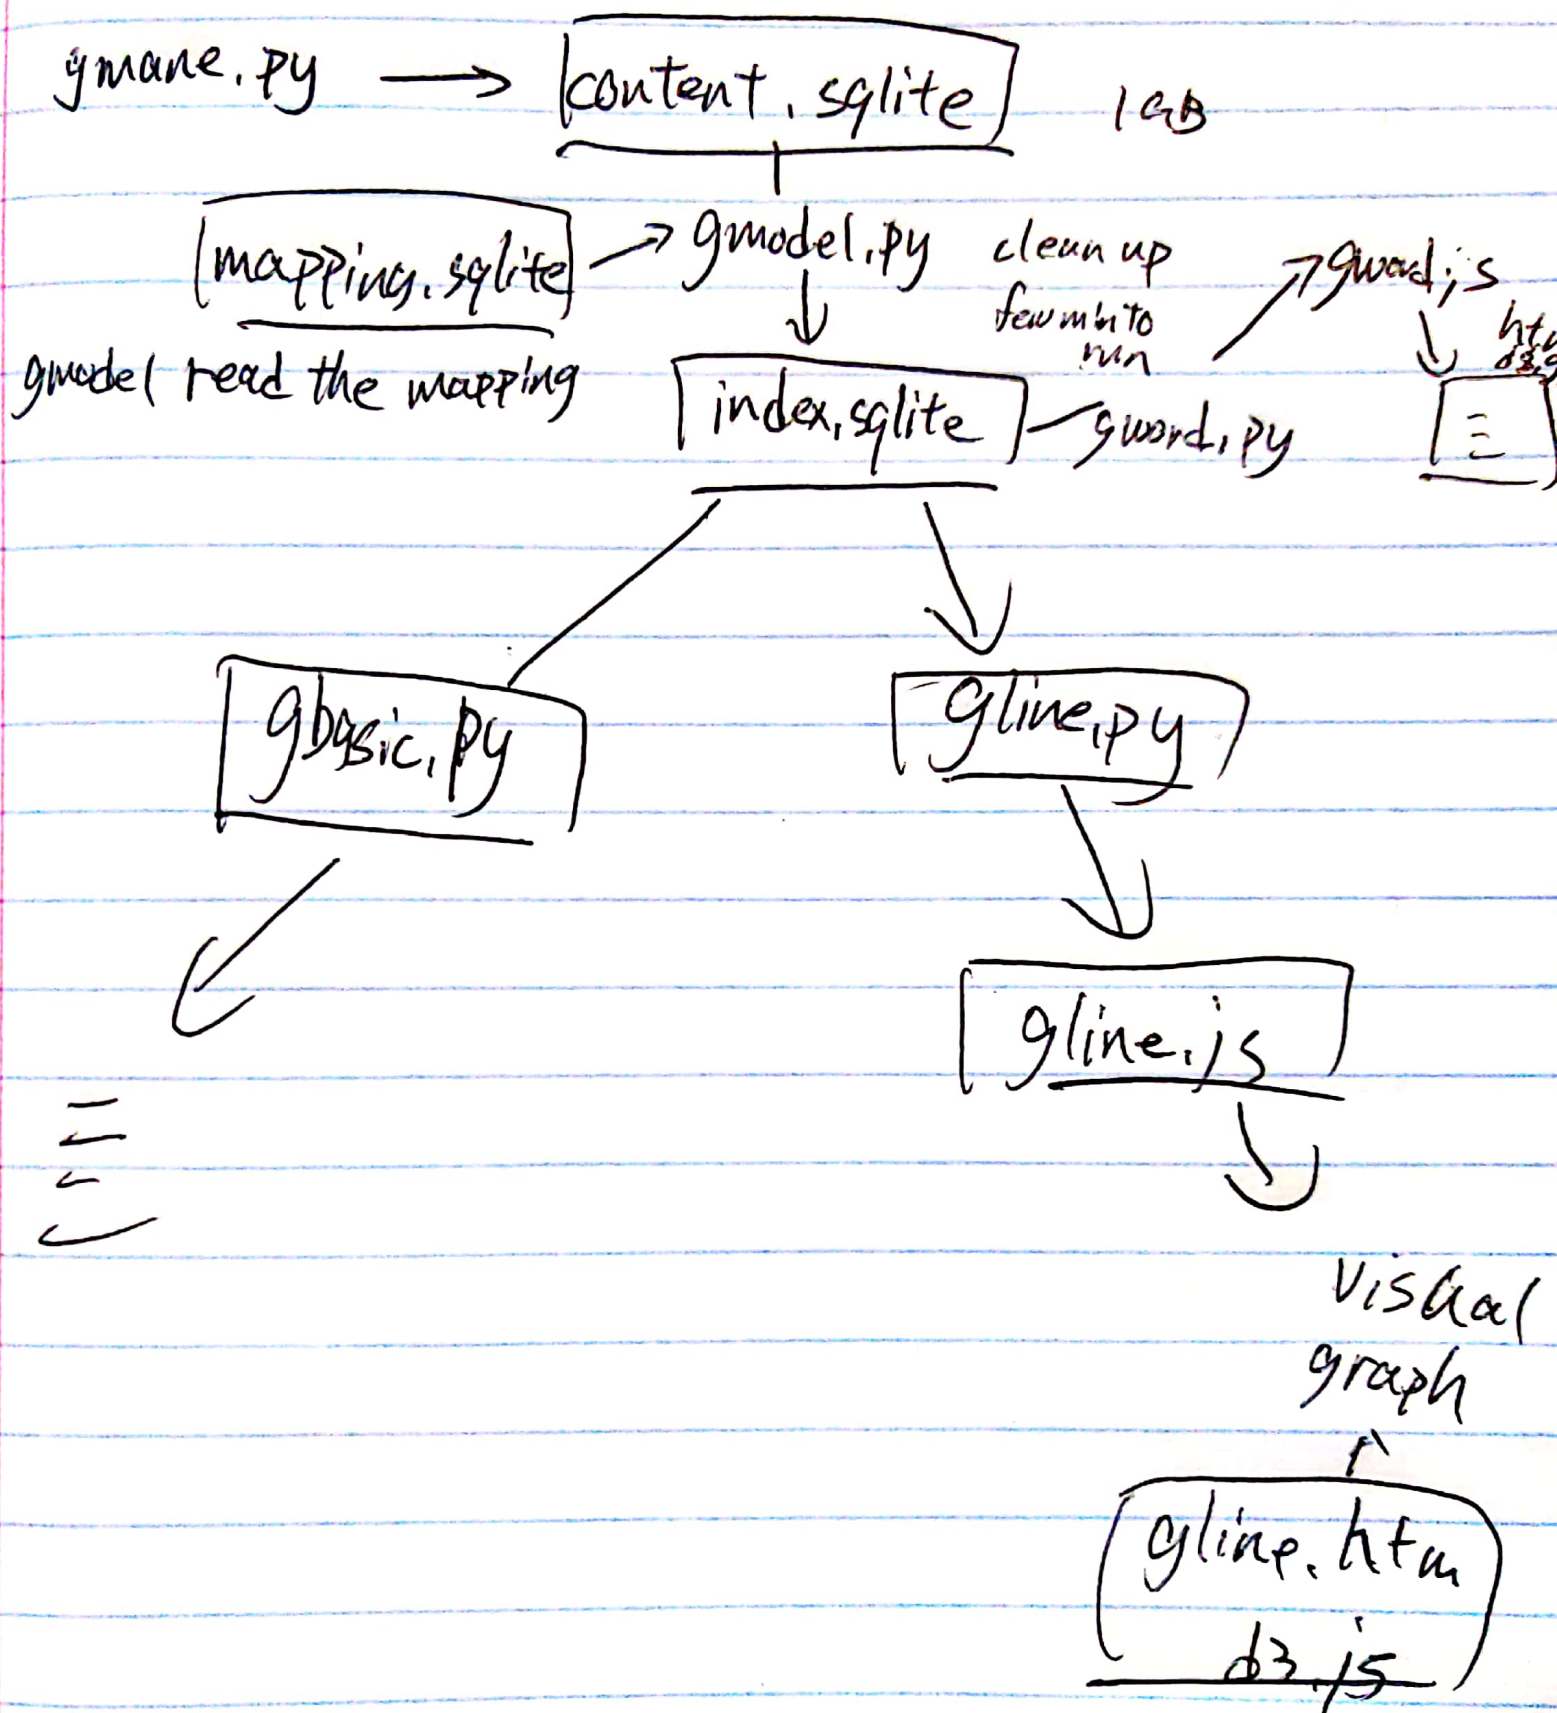 gmane.py → content.sqlite 1GB
mapping.sqlite → gmodel.py clean up
few min to
run
gword.js
gmodel read the mapping
index.sqlite gword.py
gbasic.py gline.py
gline.js
visual
graph
gline.htm
d3.js